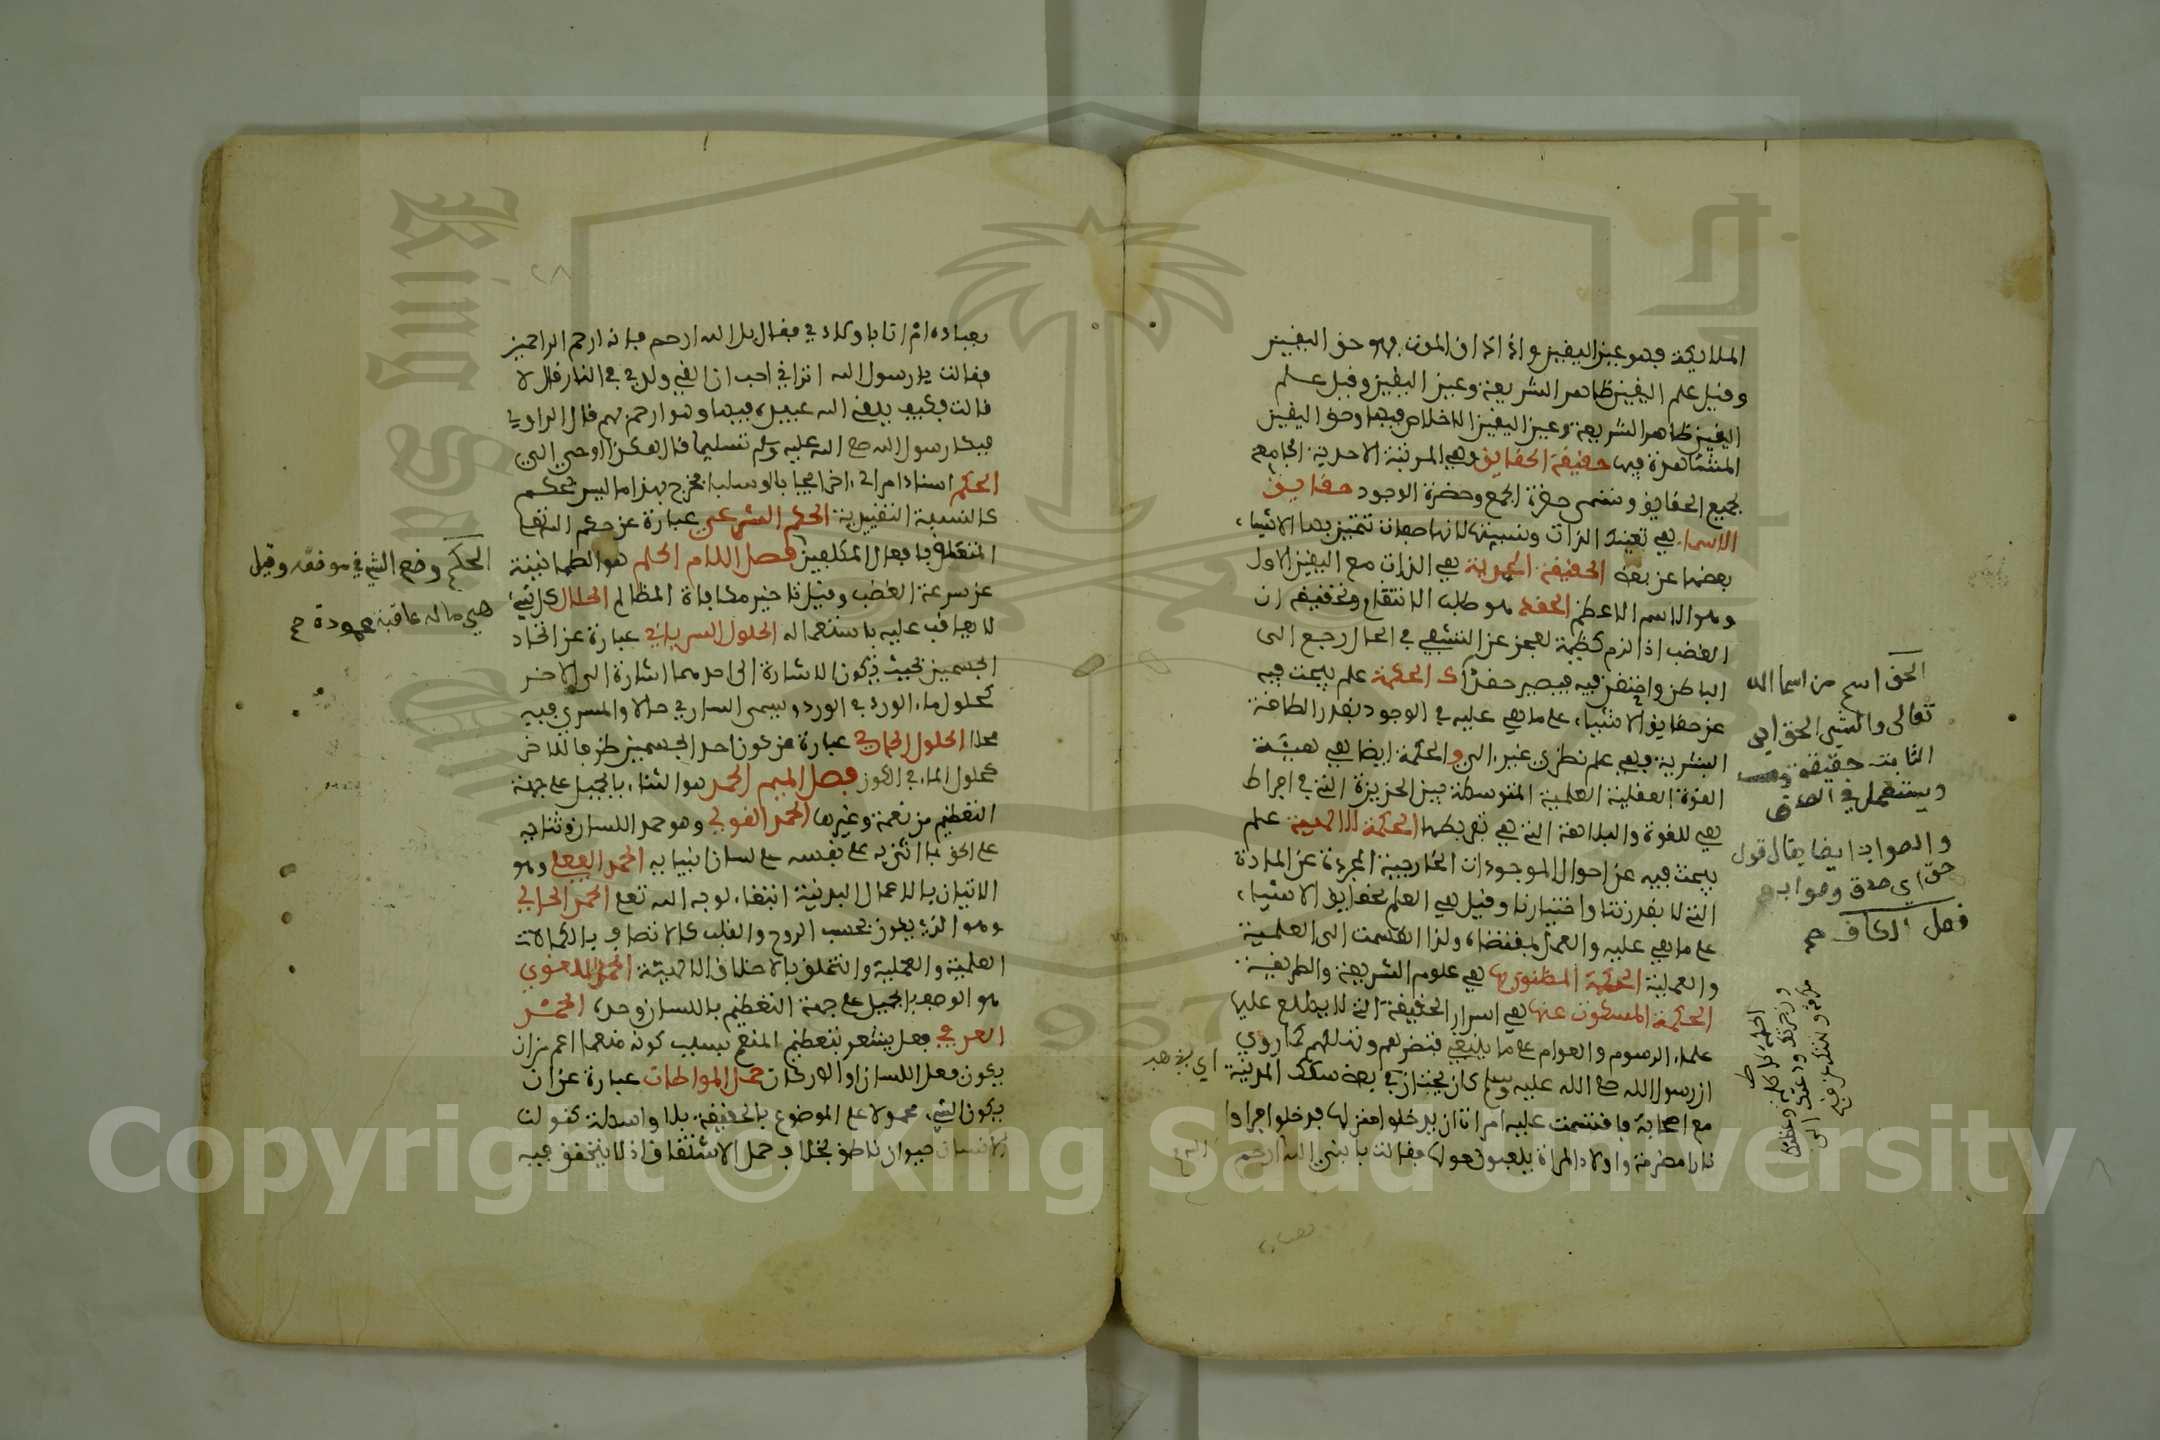 الملايكة فهو عين اليقين واذا اذان الموت فهو حق اليقين
وقيل علم اليقين ظاهر الشريعة وعين اليقين وقيل علم
اليقين ظاهر الشريعة وعين اليقين الاخلاص فيها وحق اليقين
المشاهدة فيها حقيقة الحقايق وهي المرتبة الاحدية الجامعة
لجميع الحقايق وتسمى حضرة الجمع وحضرة الوجود حقايق
الاسماء هي تعينات الذات ونسبتها لانها صفات تتميز بها الاشياء
بعضها عن بعض الحقيقة المحمدية هي الذات مع اليقين الاول
وهو الاسم الاعظم الحقد هو طلب الانتقام وتحقيقه ان
الغضب اذا لزم كظمه لعجز عن التشفي في الحال رجع الى
الباطن واحتقن فيه فيصير حقدا ك الحكمة علم يبحث فيه
عن حقايق الاشياء على ما هي عليه في الوجود بقدر الطاقة
البشرية فهي علم نظري غير الي والحكمة ايضا هي هيئة
القوة العقلية العلمية المتوسطة بين الجزيزة التي في افراط
هي للقوة والبلاهة التي هي تفريطها الحكمة الالهية علم
يبحث فيه عن احوال الموجودات الخارجية المجردة عن المادة
التي لا بقدرتنا واختيارنا وقيل هي العلم بحقايق الاشياء
على ما هي عليه والعمل بمقتضاه ولذا انقسمت الى العلمية
والعملية الحكمة المنطوق بها هي علوم الشريعة والطريقة
الحكمة المسكوت عنها هي اسرار الحقيقة التي لا يطلع عليها
علماء الرسوم والعوام على ما ينبغي فتضرهم وتهلكهم كما روي
ان رسول الله صلى الله عليه وسلم كان يجتاز في بعض سكك المدينة
مع اصحابه فاقسمت عليه امراة ان يدخلوا منزلها فدخلوا فراوا
نارا مضرمة واولاد المراة يلعبون حولها فقالت يا نبي الله الله ارحم
الحق اسم من اسما الله
تعالى والشي الحق اي
الثابت حقيقة
ويستعمل في الصدق
والصواب ايضا يقال قول
حق اي صدق وصواب
فصل الكاف
بعباده ام انا باولادي فقال بل الله ارحم فانه ارحم الراحمين
فقالت يا رسول الله اتراني احب ان القي ولدي في النار قال لا
قالت فكيف يلقي الله عبيده فيها وهو ارحم بهم قال الراوي
فبكا رسول الله صلى الله عليه وسلم تسليما فقال هكذا اوحي الي
الحكم اسناد امر الى اخر ايجابا او سلبا فخرج بهذا ما ليس بحكم
كالنسبة التقييدية الحكم الشرعي عبارة عن حكم الله تعالى
المتعلق بافعال المكلفين فصل اللام الحلم هو الطمانينة
عن سرعة الغضب وقيل تاخير مكافاة المظالم الحلال كل شي
لا يعاقب عليه باستعماله الحلول السرياني عبارة عن اتحاد
الجسمين بحيث تكون الاشارة الى احدهما اشارة الى الاخر
كحلول ماء الورد في الورد ويسمى الساري حالا والمسري فيه
محلا الحلول الجواري عبارة عن كون احد الجسمين ظرفا للاخر
كحلول الماء في الكوز فصل الميم الحمد هو الثناء بالجميل على جهة
التعظيم من نعمة وغيرها الحمد القولي وهو حمد اللسان وثناءه
على الحق بما اثنى به على نفسه على لسان انبيايه الحمد الفعلي وهو
الاتيان بالاعمال البدنية ابتغاء لوجه الله تعالى الحمد الحالي
وهو الذي يكون بحسب الروح والقلب كالاتصاف بالكمالات
العلمية والعملية والتخلق بالاخلاق الالهية الحمد اللغوي
هو الوصف بالجميل على جهة التعظيم باللسان وحده الحمد
العرفي فعل يشعر بتعظيم المنعم بسبب كونه منعما اعم من ان
يكون فعل اللسان او الاركان حمل المواطات عبارة عن ان
يكون الشي محمولا على الموضوع بالحقيقة بلا واسطة كقولنا
الانسان حيوان ناطق بخلاف حمل الاشتقاق اذ لا يتحقق فيه
الحكم وضع الشي في موضعه وقيل
هي ما له عاقبة محمودة
Copyright © King Saud University
King Saud
1957